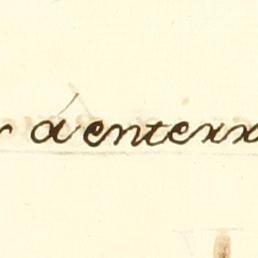 á enterr